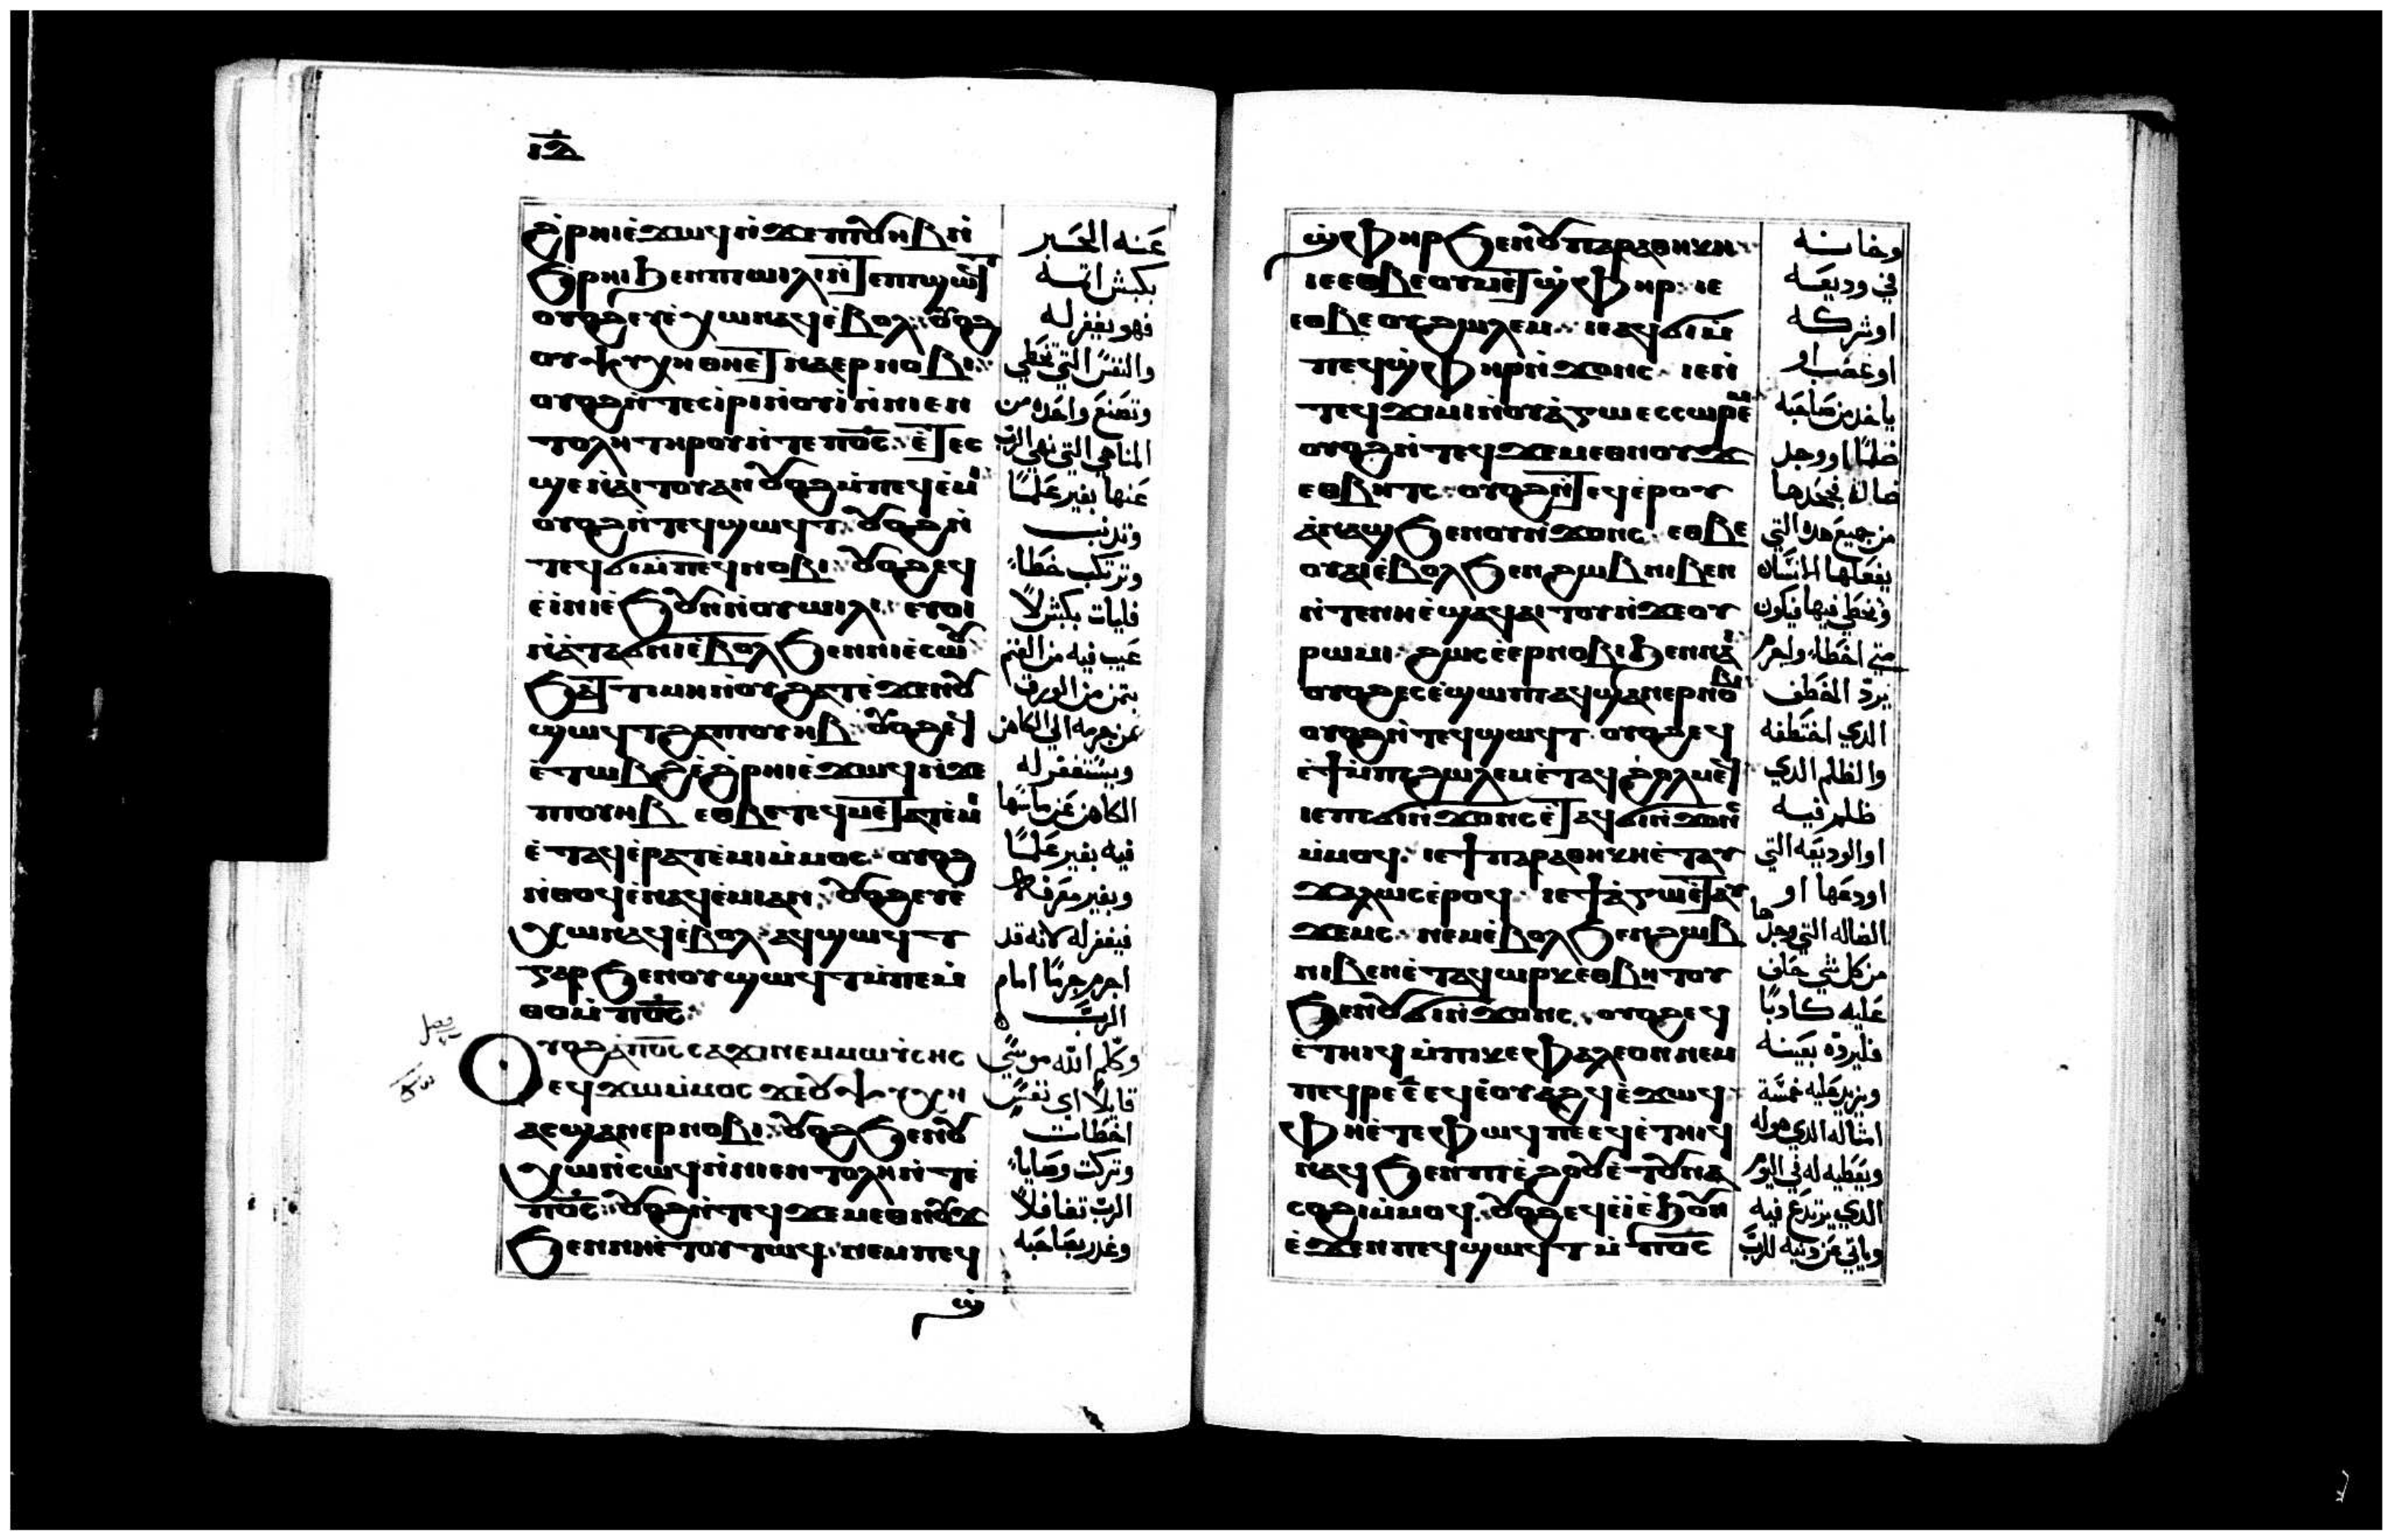 ⲓ̅ⲑ̅
ϩ̀ⲣⲏⲓⲉ̀ϫⲱϥⲛ̀ϫⲉⲡⲓⲟⲩⲏⲃⲛ̀
ϧ̀ⲣⲏⲓϧⲉⲛⲡⲓⲱⲓⲗⲓⲛ̀ⲧⲉⲡⲓϣⲱϥⲧ
ⲟⲩⲟϩⲉⲩⲉ̀ⲭⲱⲛⲁϥⲉ̀ⲃⲟⲗ ⲟⲩⲟϩ
ⲟⲩⲯⲩⲭⲏⲑⲏⲉⲧⲛⲁⲉⲣⲛⲟⲃⲓ
ⲟⲩⲟϩⲛ̀ⲧⲉⲥⲓⲣⲓⲛ̀ⲟⲩⲓ̀ⲛ̀ⲛⲓⲉⲛ
ⲧⲟⲗⲏⲧⲏⲣⲟⲩⲛ̀ⲧⲉⲡⲟ̅ⲥ̅ ⲉ̀ⲧⲉⲥ
ϣⲉⲛ̀ⲁⲓⲧⲟⲩⲁⲛ ⲟⲩⲟϩⲙ̀ⲡⲉϥⲉ̀ⲙⲓ
ⲟⲩⲟϩⲛ̀ⲧⲉϥϣⲱϥⲧ ⲟⲩⲟϩⲛ̀
ⲧⲉϥϭⲓⲙ̀ⲡⲉϥⲛⲟⲃⲓ ⲟⲩⲟϩⲉϥ
ⲉ̀ⲓ̀ⲛⲓⲉ̀ϧⲟⲩⲛⲛ̀ⲟⲩⲱⲓⲗⲓ ⲉⲩⲟⲓ
ⲛ̀ⲁⲧⲁϭⲛⲓⲉ̀ⲃⲟⲗϧⲉⲛⲛⲓⲉ̀ⲥⲱⲟⲩ
ϧⲁⲧⲧⲓⲙⲏⲛ̀ⲟⲩϩⲁⲧⲉ̀ϫⲉⲛⲟⲩ
ϣⲱϥⲧϩⲁⲡⲓⲟⲩⲏⲃ ⲟⲩⲟϩⲉϥ
ⲉ̀ⲧⲱⲃϩⲉ̀ϩ̀ⲣⲏⲓⲉ̀ϫⲱϥⲛ̀ϫⲉ
ⲡⲓⲟⲩⲏⲃ ⲉⲑⲃⲉⲧⲉϥⲙⲉⲧⲁⲧⲉ̀ⲙⲓ
ⲉ̀ⲧⲁϥⲉ̀ⲣⲁⲧⲉ̀ⲙⲓⲙ̀ⲙⲟⲥ ⲟⲩⲟϩ
ⲛ̀ⲑⲟϥⲉ̀ⲛⲁϥⲉ̀ⲙⲓⲁⲛ ⲟⲩⲟϩⲉⲩⲉ̀
ⲭⲱⲛⲁϥⲉ̀ⲃⲟⲗ ⲁϥϣⲱϥⲧ
ⲅⲁⲣϧⲉⲛⲟⲩϣⲱϥⲧⲙ̀ⲡⲉⲙ̀
ⲑⲟⲙ̀ⲡⲟ̅ⲥ̅
ⲟⲩⲟϩⲁ̀ⲡⲟ̅ⲥ̅ⲥⲁϫⲓⲛⲉⲙⲙⲱⲩⲥⲏⲥ
ⲉϥϫⲱⲙ̀ⲙⲟⲥ ϫⲉⲟⲩⲯⲩⲭⲏ
ⲁⲥϣⲁⲛⲉⲣⲛⲟⲃⲓ ⲟⲩⲟϩϧⲉⲛⲟⲩ
ⲭⲱⲛ̀ⲥⲱϥⲛ̀ⲛⲓⲉⲛⲧⲟⲗⲏⲛ̀ⲧⲉ
ⲡⲟ̅ⲥ̅ ⲟⲩⲟϩⲛ̀ⲧⲉϥϫⲉⲙⲉⲑⲛⲟⲩϫ
ϧⲉⲛⲛⲏⲉ̀ⲧⲟⲩⲧⲱϥ ⲛⲉⲙⲡⲉϥ
ϣ̀
عنه الحبر
بكبش اتمه
فهو يغفر له
والنفس التي تخطي
وتصنع واحده من
المناهي التي نهي الرب
عنها بغير علمًا
وتذنب
وترتكب خطاءً
فليات بكبش لا
عيب فيه من الغنم
بثمن من الورق
عن جرمه الي الكاهن
ويستغفر له
الكاهن عن ما سها
فيه بغير علمًا
وبغير معرفه
فيغفر له لانه قد
اجرم جرمًا امام
الرب
وكلم الله موسي
قايلًا اي نفسٍ
اخطات
وتركت وصاياء
الرب تغافلًا
وغدر بصاحبه
فصل
ϣ̀ⲫⲏⲣϧⲉⲛⲟⲩⲡⲁⲣⲁⲑⲏⲕⲏ
ⲓⲉⲉⲑⲃⲉⲟⲩⲙⲉⲧϣ̀ⲫⲏⲣ ⲓⲉ
ⲉⲑⲃⲉⲟⲩϩⲱⲗⲉⲙ ⲓⲉⲁϥϭⲓⲙ̀
ⲡⲉϥϣ̀ⲫⲏⲣⲛ̀ϫⲟⲛⲥ ⲓⲉⲛ̀
ⲧⲉϥϫⲓⲙⲓⲛ̀ⲟⲩⲁ̀ⲅⲱⲉⲥⲥⲱⲣⲉⲙ
ⲟⲩⲟϩⲛ̀ⲧⲉϥϫⲉⲙⲉⲑⲛⲟⲩϫ
ⲉⲑⲃⲏⲧⲥ ⲟⲩⲟϩⲛ̀ⲧⲉϥⲉ̀ⲣⲟⲩ
ⲁ̀ⲛⲁϣϧⲉⲛⲟⲩⲛ̀ϫⲟⲛⲥ ⲉⲑⲃⲉ
ⲟⲩⲁⲓⲉ̀ⲃⲟⲗϧⲉⲛϩⲱⲃⲛⲓⲃⲉⲛ
ⲛ̀ⲧⲉⲛⲏⲉ̀ϣⲁϥⲁⲓⲧⲟⲩⲛ̀ϫⲉⲟⲩ
ⲣⲱⲙⲓ ϩⲱⲥⲉ̀ⲉⲣⲛⲟⲃⲓϧⲉⲛⲛⲁⲓ
ⲟⲩⲟϩⲉⲥⲉ̀ϣⲱⲡⲓⲁϥϣⲁⲛⲉⲣⲛⲟⲃⲓ
ⲟⲩⲟϩⲛ̀ⲧⲉϥϣⲱϥⲧ ⲟⲩⲟϩⲉϥ
ⲉ̀ϯⲙ̀ⲡⲓϩⲱⲗⲉⲙⲉ̀ⲧⲁϥϩⲟⲗⲙⲉϥ
ⲓⲉⲡⲓϭⲓⲛ̀ϫⲟⲛⲥⲉ̀ⲧⲁϥϭⲓⲛ̀ϫⲟⲛⲥ
ⲙ̀ⲙⲟϥ ⲓⲉϯⲡⲁⲣⲁⲑⲏⲕⲏⲉ̀ⲧⲁⲩ
ⲭⲁⲗⲱⲥⲉ̀ⲣⲟϥ ⲓⲉϯⲁ̀ⲅⲱⲉ̀ⲧⲁϥ
ϫⲉⲙⲥ ⲛⲉⲙⲉ̀ⲃⲟⲗϧⲉⲛϩⲱⲃ
ⲛⲓⲃⲉⲛⲉ̀ⲧⲁϥⲱⲣⲕⲉⲑⲃⲏⲧⲟⲩ
ϧⲉⲛⲟⲩϭⲓⲛ̀ϫⲟⲛⲥ ⲟⲩⲟϩⲉϥ
ⲉ̀ⲧⲏⲓϥⲙ̀ⲡⲓⲕⲉⲫⲁⲗⲉⲟⲛⲛⲉⲙ
ⲡⲉϥⲣⲉⲉ̅ⲉϥⲉ̀ⲟⲩⲁϩϥⲉ̀ϫⲱϥ
ⲫⲏⲉ̀ⲧⲉⲫⲱϥⲡⲉⲉϥⲉ̀ⲧⲏⲓϥ
ⲛⲁϥϧⲉⲛⲡⲓⲉ̀ϩⲟⲟⲩⲉ̀ⲧⲟⲩⲛⲁ
ⲥⲟϩⲓⲙ̀ⲙⲟϥ ⲟⲩⲟϩⲉϥⲉ̀ⲓ̀ⲉ̀ϧⲟⲩⲛ
ⲉ̀ϫⲉⲛⲡⲉϥϣⲱϥⲧⲙ̀ⲡⲟ̅ⲥ̅
وخانه
في وديعه
او شركه
او غصب او
ياخد من صاحبه
ظلمًا او وجد
ضالة فجحدها
من جميع هذه التي
يفعلها الانسان
ويخطي فيها فيكون
متي اخطاء واجرم
يرد الخطف
الذي اختطفه
والظلم الذي
ظلم فيه
او الوديعه التي
اودعها او
الضاله التي وجدها
من كل شي حلف
عليه كاذبًا
فليرده بعينه
ويزيد عليه خمسة
امثاله الذي هو له
ويعطيه له في اليوم
الذي يرتدع فيه
وياتي عن ذنبه للرب